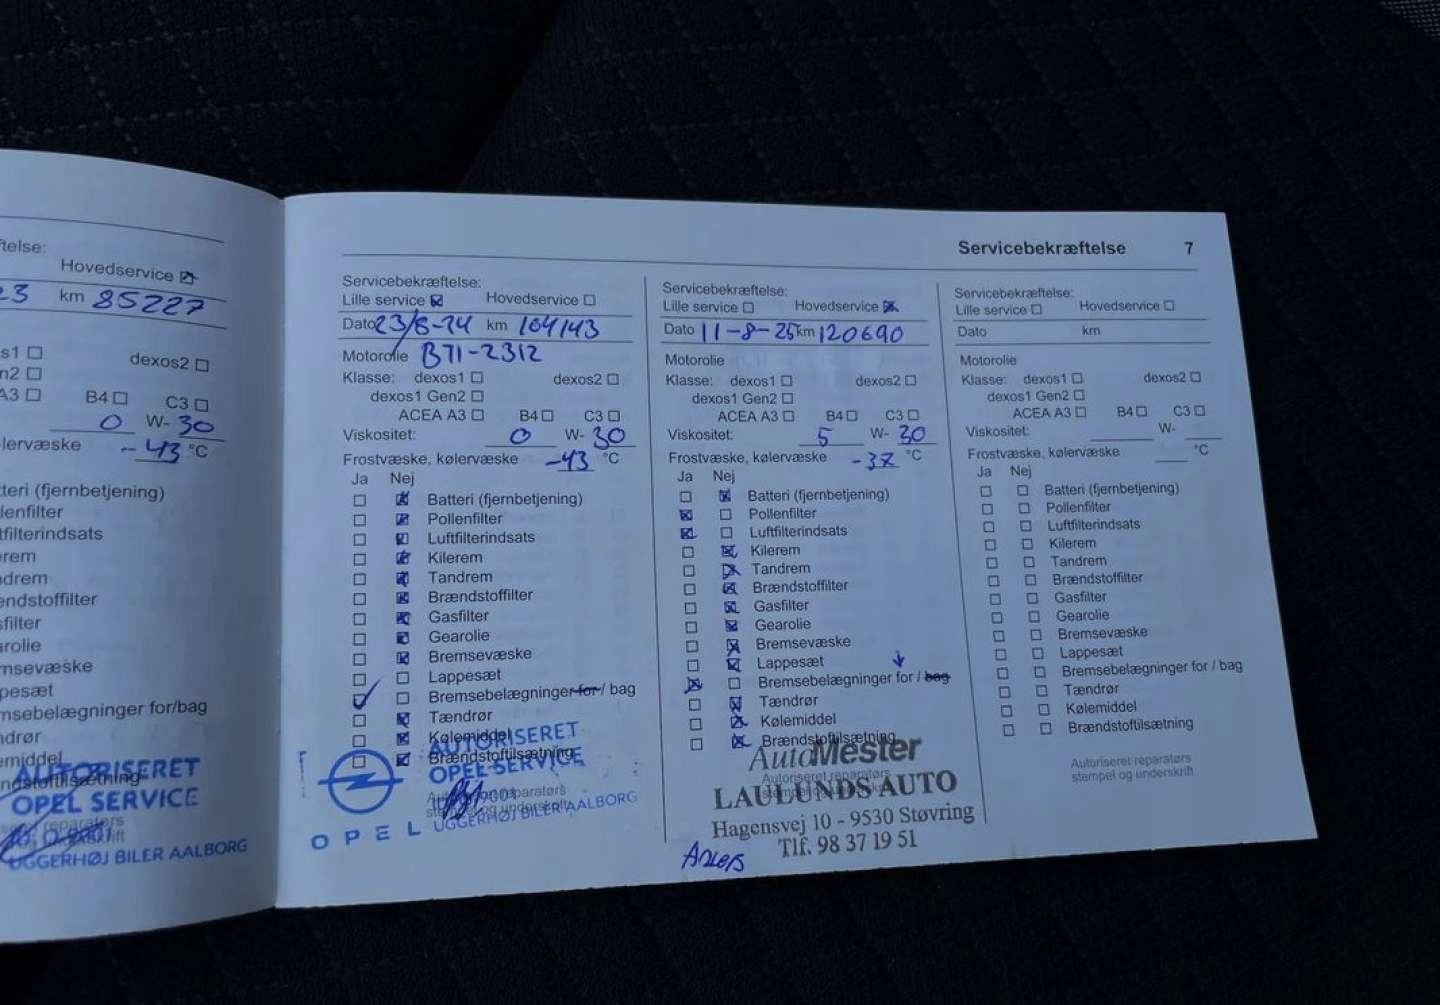 Hovedservice
km 85227
dexos2
B4 C3
0 W- 30
-43 °C
(fjernbetjening)
for/bag
AUTORISERET
OPEL SERVICE
UGGERHØJ BILER AALBORG
Servicebekræftelse 7
Servicebekræftelse:
Lille service Hovedservice
Dato 23/8-24 km 104143
Motorolie B71-2312
Klasse: dexos1 dexos2
dexos1 Gen2
ACEA A3 B4 C3
Viskositet: 0 W- 30
Frostvæske, kølervæske -43 °C
Ja Nej
Batteri (fjernbetjening)
Pollenfilter
Luftfilterindsats
Kilerem
Tandrem
Brændstoffilter
Gasfilter
Gearolie
Bremsevæske
Lappesæt
Bremsebelægninger for / bag
Tændrør
Kølemiddel
Brændstoftilsætning
AUTORISERET
OPEL SERVICE
Autoriseret reparatørs
stempel og underskrift
UGGERHØJ BILER AALBORG
OPEL
Servicebekræftelse:
Lille service Hovedservice
Dato 11-8-25 km 120690
Motorolie
Klasse: dexos1 dexos2
dexos1 Gen2
ACEA A3 B4 C3
Viskositet: 5 W- 30
Frostvæske, kølervæske -37 °C
Ja Nej
Batteri (fjernbetjening)
Pollenfilter
Luftfilterindsats
Kilerem
Tandrem
Brændstoffilter
Gasfilter
Gearolie
Bremsevæske
Lappesæt
Bremsebelægninger for / bag
Tændrør
Kølemiddel
Brændstoftilsætning
AutoMester
Autoriseret reparatørs
stempel og underskrift
LAULUNDS AUTO
Hagensvej 10 - 9530 Støvring
Tlf. 98 37 19 51
Anders
Servicebekræftelse:
Lille service Hovedservice
Dato km
Motorolie
Klasse: dexos1 dexos2
dexos1 Gen2
ACEA A3 B4 C3
Viskositet: W-
Frostvæske, kølervæske °C
Ja Nej
Batteri (fjernbetjening)
Pollenfilter
Luftfilterindsats
Kilerem
Tandrem
Brændstoffilter
Gasfilter
Gearolie
Bremsevæske
Lappesæt
Bremsebelægninger for / bag
Tændrør
Kølemiddel
Brændstoftilsætning
Autoriseret reparatørs
stempel og underskrift